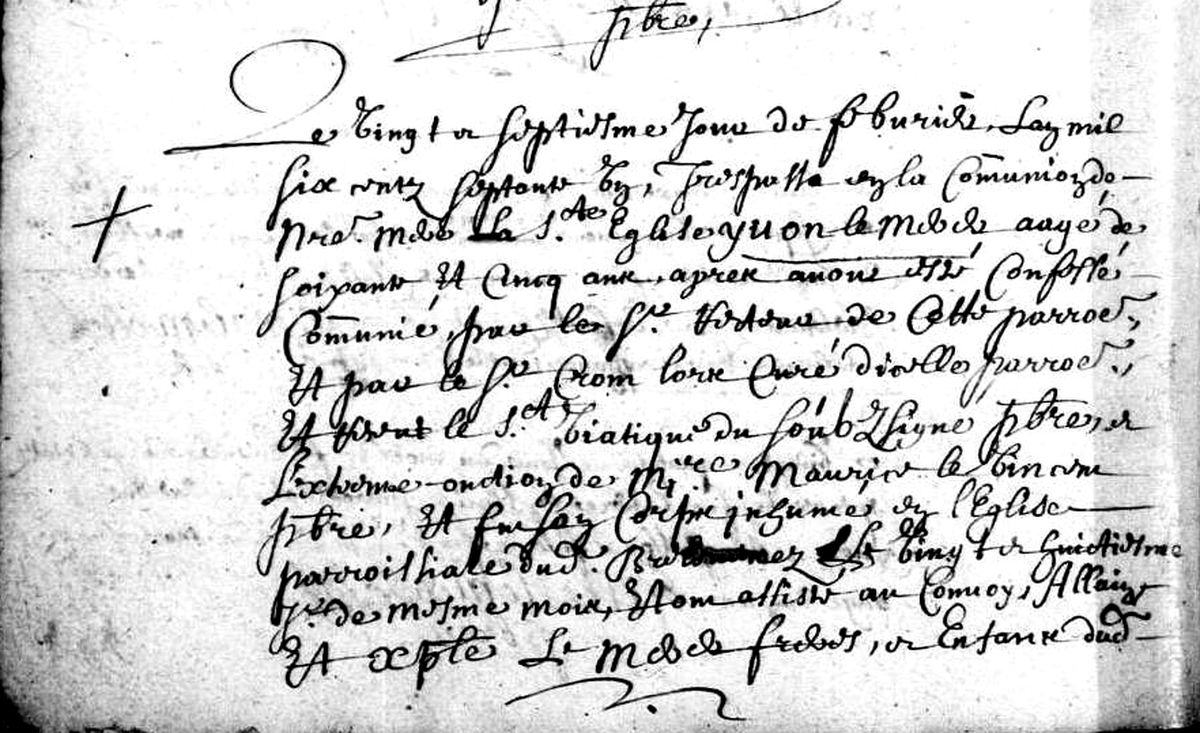 pbre,
Le vingt et septiesme Jour de feburier, Lan mil
six centz septante un, Trespassa en la Comunion de
nre. mere la Ste Eglise yuon le Meder aagé de
soixante et Cincq ans, apres auoir esté Confessé
Comunié, par le Sr. Recteur de Cette parroe.,
Et par le Sr. Curé dicelle parroe.,
Et Receut le St. Viatique du soubzsigne pbre, et
L'extreme onction de Mire Maurice le vincent
pbre, Et fut son Corps inhumé en l'Eglise
parroissiale dud. Le vingt et huictiesme
Jr. de mesme mois, Et ont assisté au Conuoy, Allain
Et xple Le Meder freres, et Enfans dud